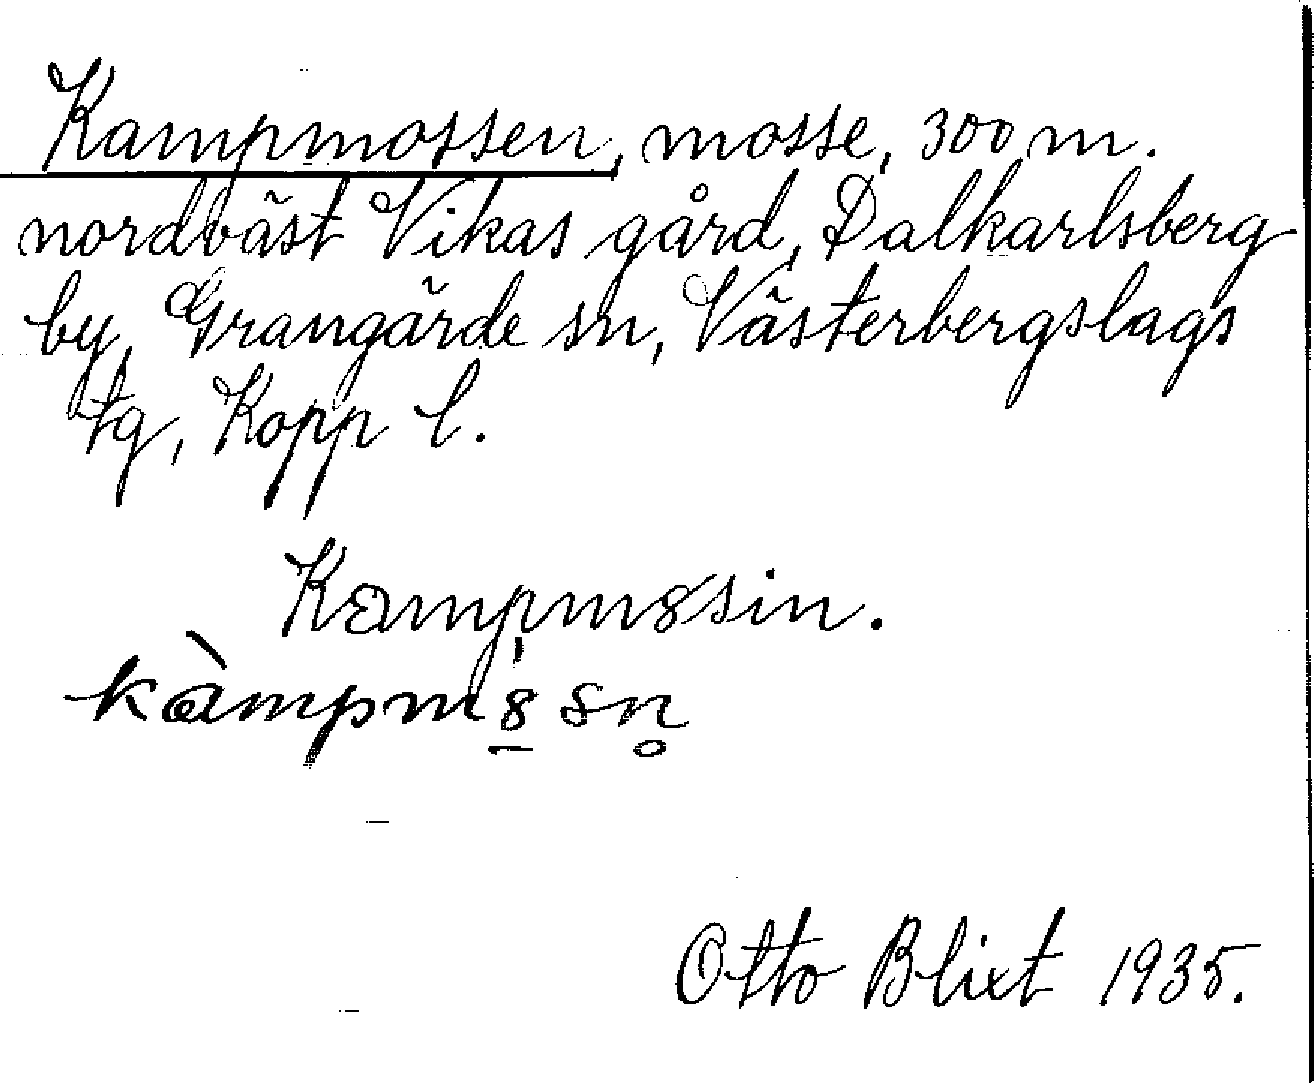 Kampmossen, mosse, 300 m.
nordväst Vikas gård, Dalkarlsberg
by, Grangärde sn, Västerbergslags
tg, Kopp l.
Kampm8sin.
kàmpm8̱sn̥
Otto Blixt 1935.